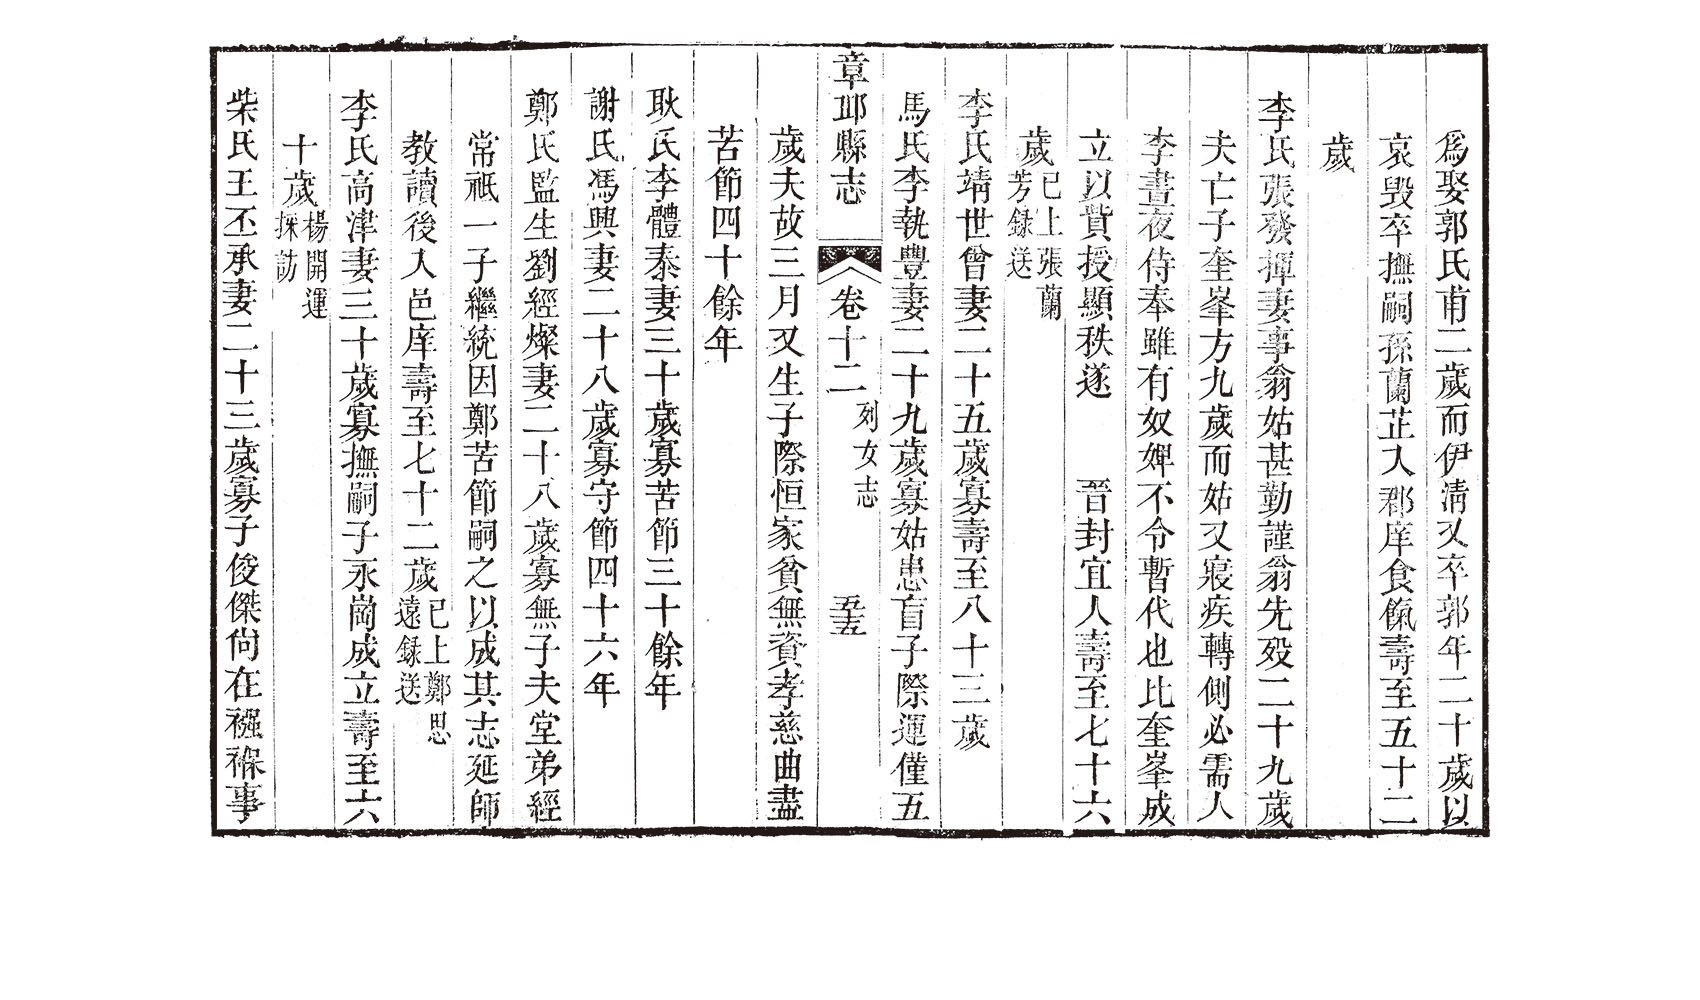 爲娶郭氏甫二歲而伊淸又卒郭年二十歲以
哀毀卒撫嗣孫蘭芷入郡庠食餼壽至五十二
歲
李氏張發揮妻事翁姑甚勤謹翁先歿二十九歲
夫亡子奎峯方九歲而姑又寢疾轉側必需人
李晝夜侍奉雖有奴婢不令暫代也比奎峯成
立以貲授顯秩遂 晋封宜人壽至七十六
歲已上張蘭芳録送
李氏靖世曾妻二十五歲寡壽至八十三歲
馬氏李執豐妻二十九歲寡姑患盲子際運僅五
章邱縣志 卷十二 列女志 五十五
歲夫故三月又生子際恒家貧無資孝慈曲盡
苦節四十餘年
耿氏李體泰妻三十歲寡苦節三十餘年
謝氏馮興妻二十八歲寡守節四十六年
鄭氏監生劉經燦妻二十八歲寡無子夫堂弟經
常祇一子繼統因鄭苦節嗣之以成其志延師
教讀後入邑庠壽至七十二歲已上鄭思遠録送
李氏高津妻三十歲寡撫嗣子永崗成立壽至六
十歲楊開運採訪
柴氏王丕承妻二十三歲寡子俊傑尙在襁褓事